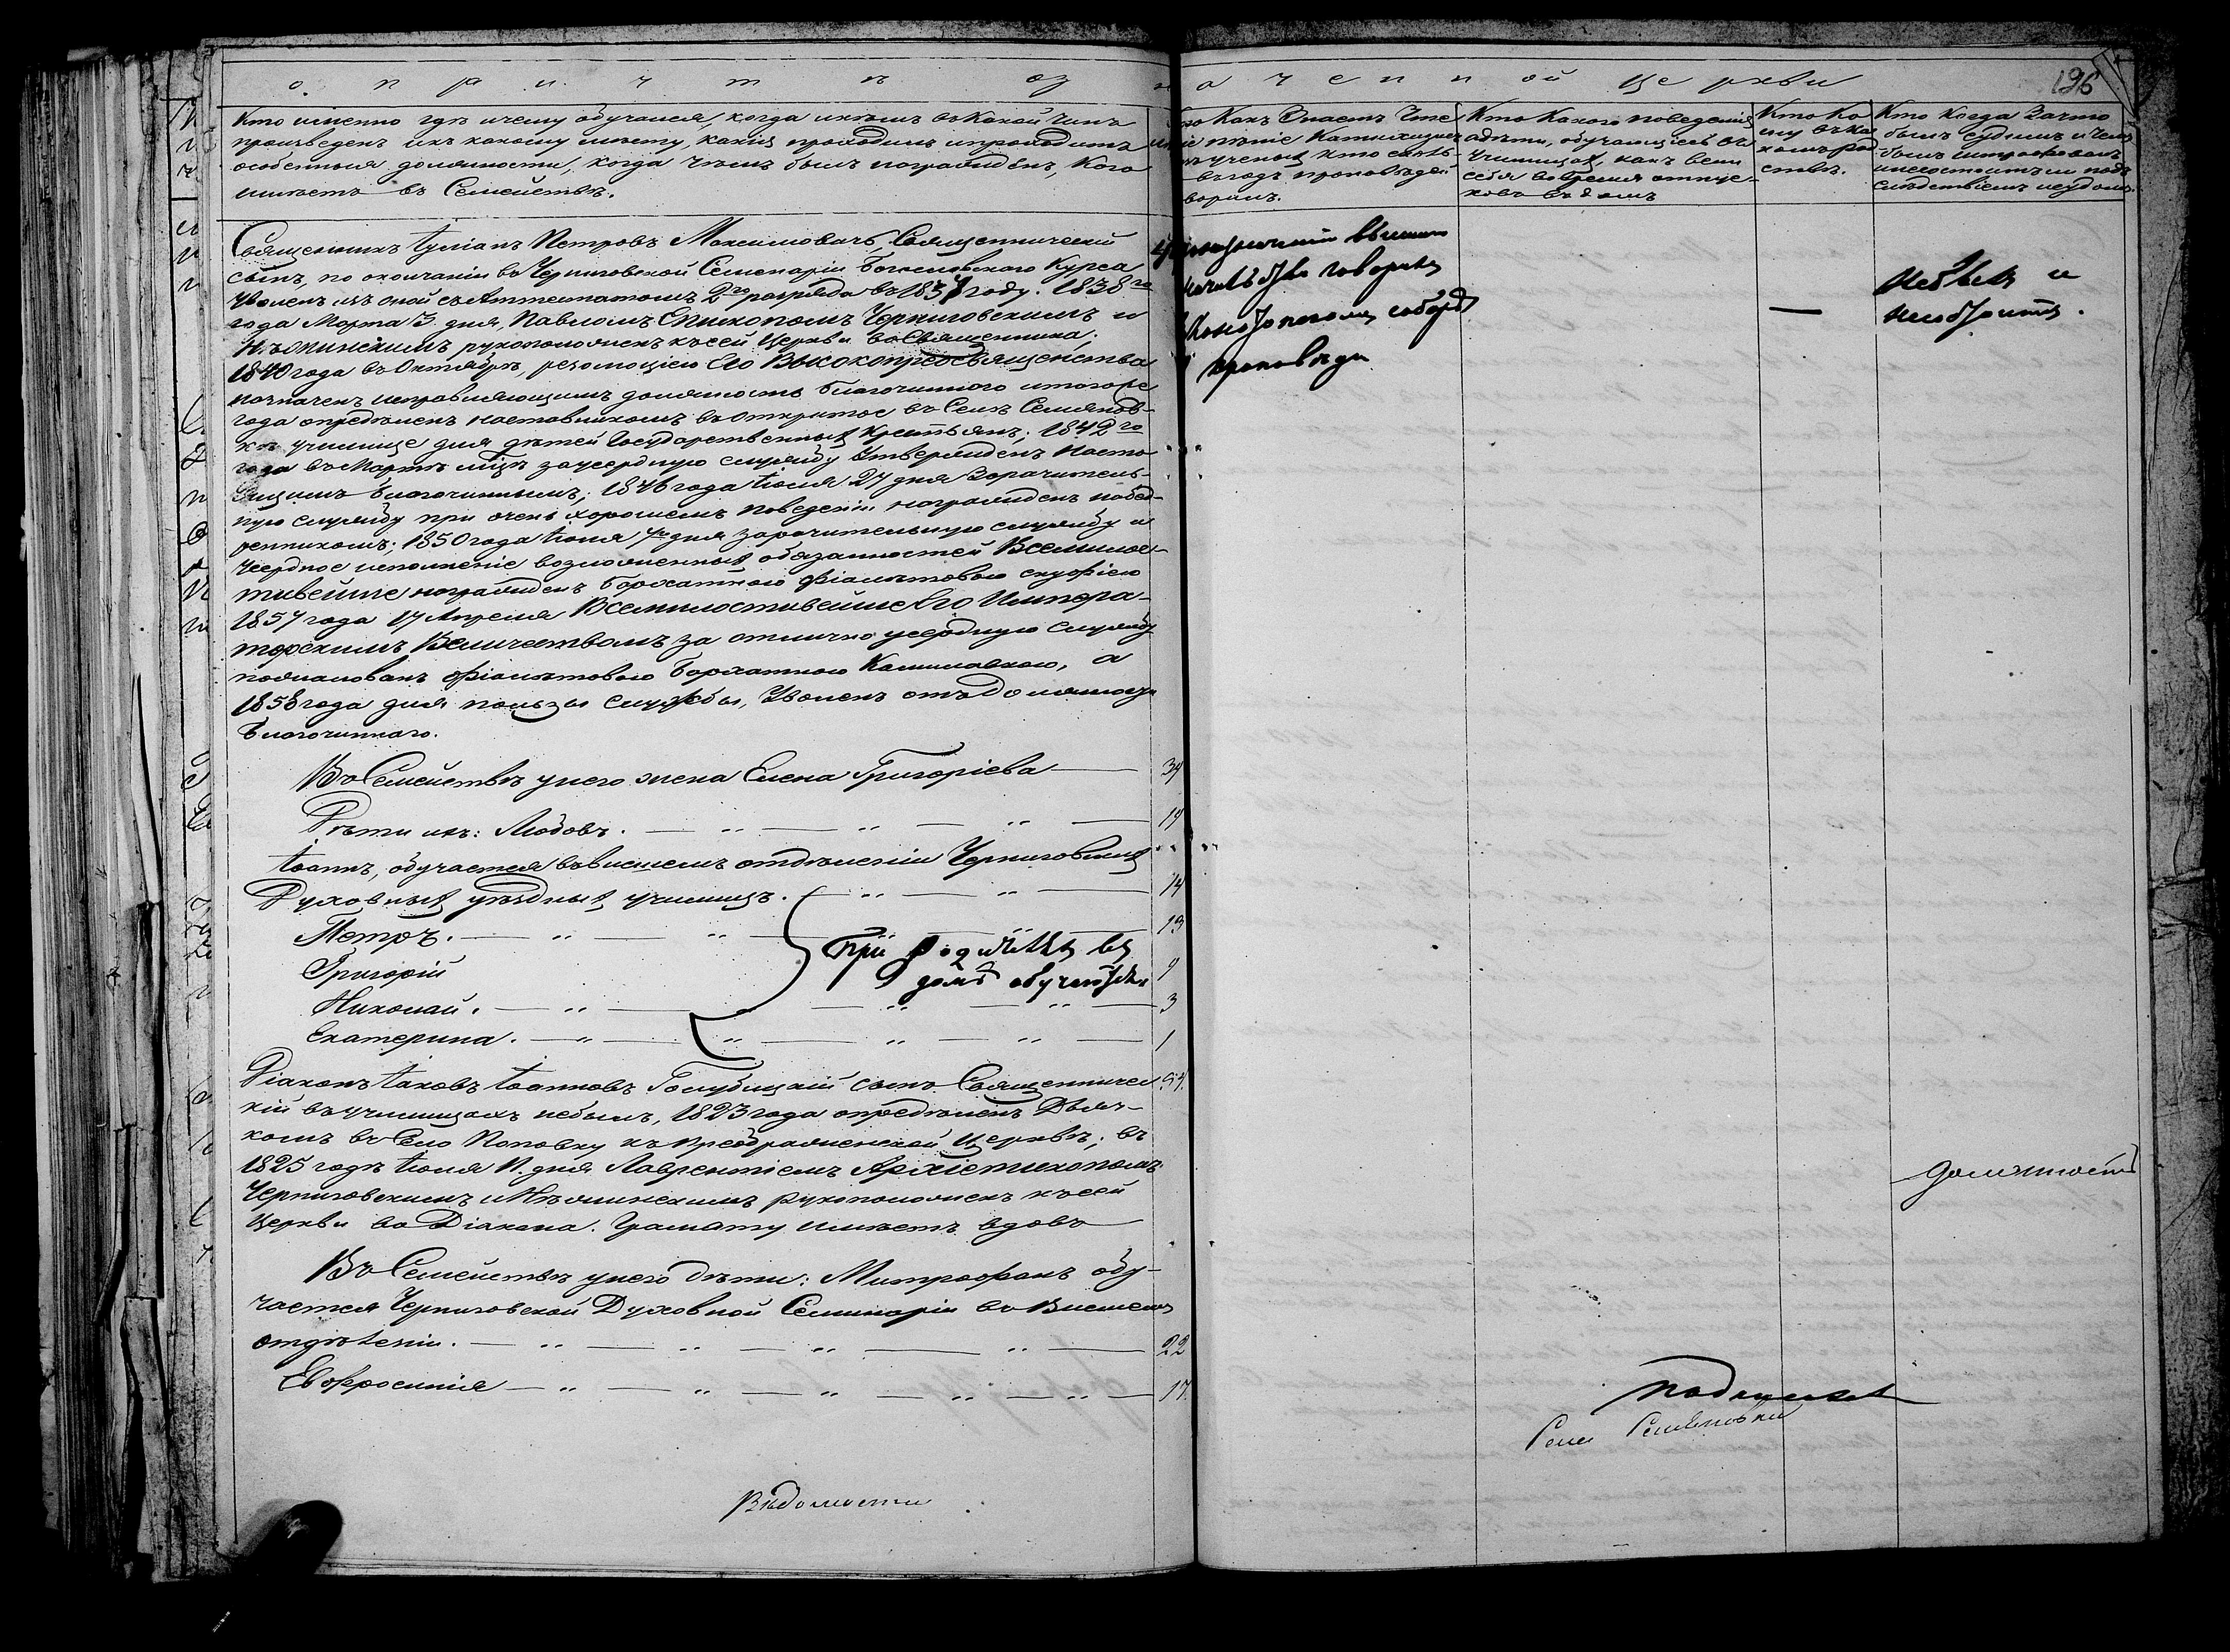 о п р и ч т п оз н а ч е н н ой це ркви
196
Кто именно гдѣ и чему обучался, когда икѣмъ въ какой чинъ
произведенъ икъ какому мѣсту, какія проходилъ ипроходитъ
особенныя должности, когда чѣмъ былъ награжденъ, кого
имѣетъ въ Семействѣ.
Какъ Знаетъ Чте
ніе пѣніе Катихизисъ
ученый кто сколь
въ годъ проповѣдей
ворилъ.
Кто Какого поведенія
адѣти, обучающіесь въ
Училищах, какъ вели
себя вовремя отпус-
ковъ въ домъ
Кто Ко
му въ ка
комъ род
ствѣ.
Кто Когда Зачто
былъ судимъ ичемъ
былъ штрафованъ
инесостоитъ ли подъ
слѣдствіемъ исудомъ.
Священникъ Іуліанъ Петровъ Максимовичъ, Священническій
сынъ, по окончаніи въ Черниговской Семенаріи Богословскаго Курса
Уволенъ изъ оной съ Аттестатомъ 2го разряда въ 1837 году. 1838го
года Марта 3 дня, Павломъ Епископомъ Черниговскимъ и
Нѣжинскимъ рукоположенъ къ сей Церкви во Священника;
1840 года въ Октябрѣ, резолюціею Его Высокопреосвященства
назначенъ исправляющимъ должность Благочиннаго итогоже
года опредѣленъ наставникомъ въ открытое въ Селѣ Семянов-
кѣ училище для дѣтей Государственныхъ Крестьянъ; 1842го
года въ Мартѣ мцѣ заусердную службу Утвержденъ Насто
ящимъ Благочиннымъ; 1846 года Іюля 27 дня Зарачитель-
ную службу при очень хорошемъ поведеніи награжденъ набед-
ренникомъ; 1850 года Іюля 4го дня зарачительную службу и
Усердное исполненіе возложенныхъ обязанностей Всемилос-
тивейше награжденъ бархатною фіолетовою скуфіею
1857 года 17 Апреля Всемилостивейше Его Импера-
торскимъ Величествомъ за отлично усердную службу
пожалованъ фіолетовою бархатною Камилавкою, а
1858 года для пользы службы, Уволенъ отъ должности
Благочиннаго.
въ Консисторскомъ соборѣ
проповѣди
небылъ и
несостоитъ.
Въ Семействѣ унего жена Елена Григоріева 39
Дѣти ихъ: Любовь. 19
Іоаннъ, обучается ввысшемъ отдѣленіи Черниговскихъ
Духовныхъ уѣздныхъ училищъ. 14
Петръ. 13
Григорій 9
Николай. 3
Екатерина. 1
При родителяхъ въ
домѣ обучаются
Діаконъ Іаковъ Іоанновъ Голубицкій сынъ Священничес
кій въ училищахъ небылъ, 1823 года опредѣленъ Дьяч-
комъ въ Село Поповку къ Преображенской Церквѣ; въ
1825 годѣ Іюля 11. дня Лаврентіемъ Архіепископомъ
Черниговскимъ и Нѣжинскимъ рукоположенъ къ сей
Церкви во Діакона. Грамату имѣетъ вдовъ
Должность
Въ Семействѣ унего дѣти: Митрофанъ обу-
чается Черниговской Духовной Семинаріи во Высшемъ
отдѣленіи. 22
Евфросинія 17.
Села Семяновки
Вѣдомости